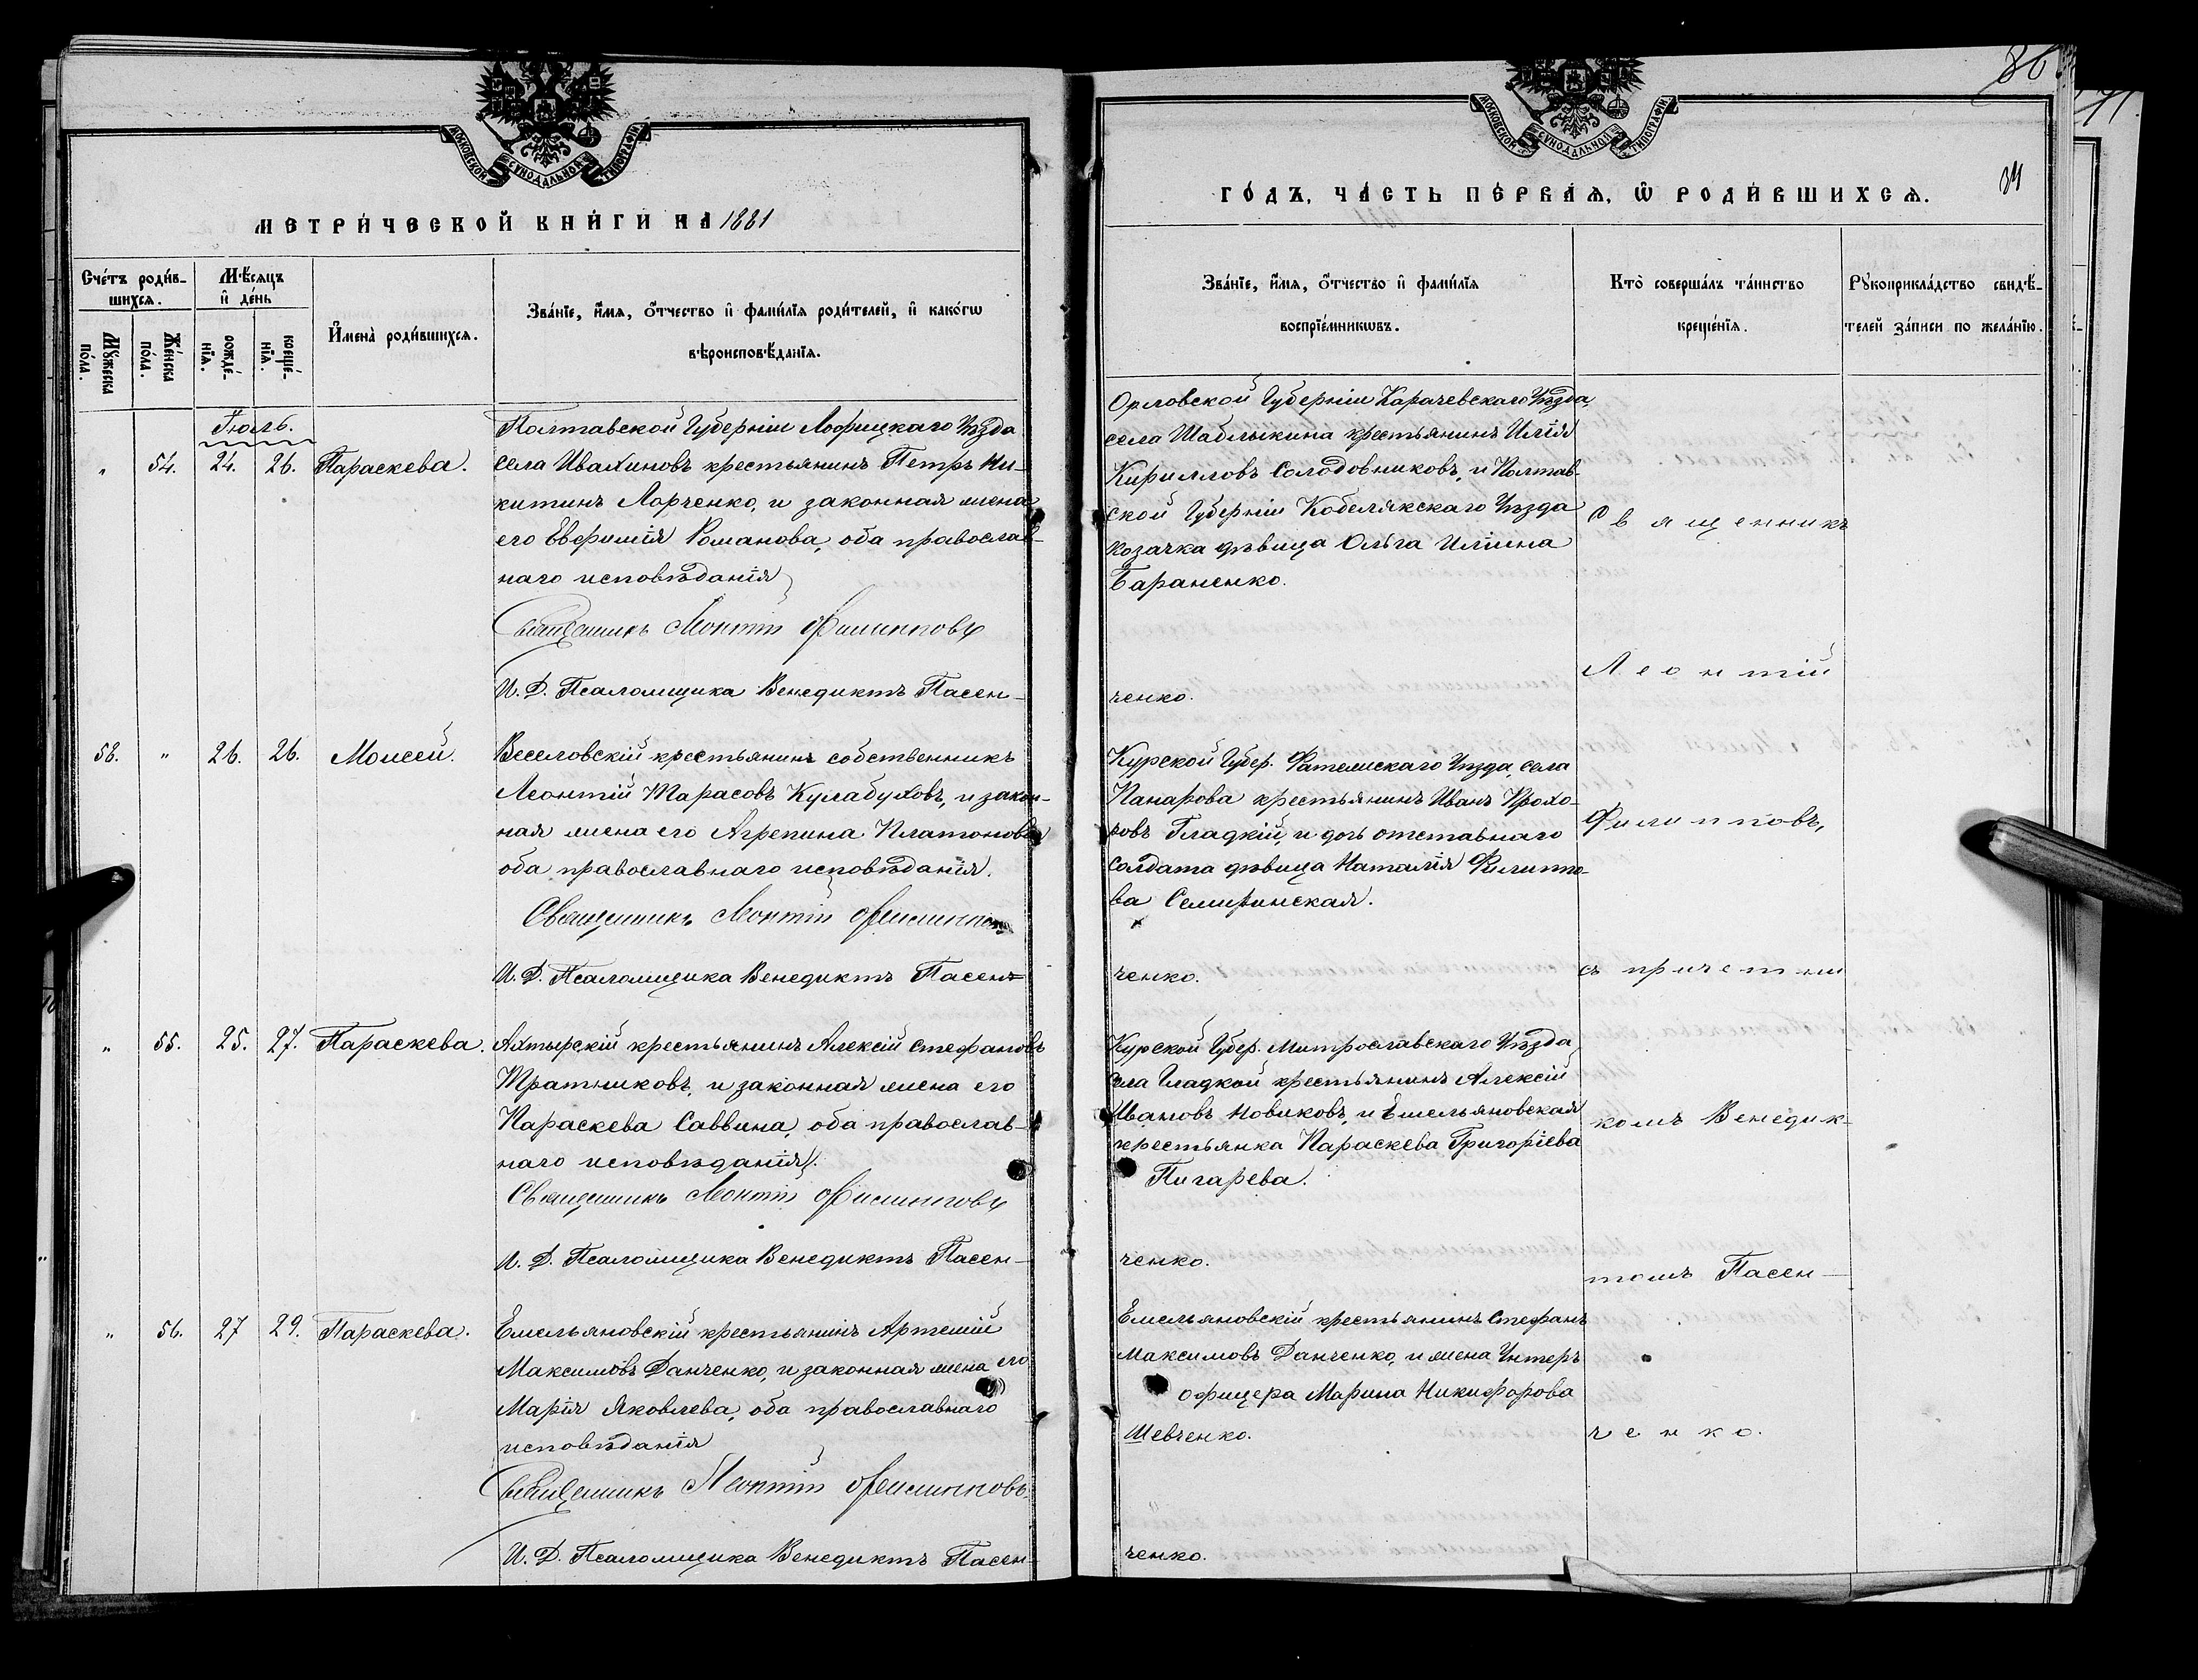 МОСКОВСКОЙ СѴНОДАЛЬНОЙ ТИПОГРАФІИ
МЕТРИ́ЧЕСКОЙ КНИ́ГИ НА 1881
Сче́тъ роди́в-
шихсѧ.
Мѣ́сѧцъ
и҆ де́нь
Мꙋ́жеска
по́ла.
Же́нска
по́ла.
рожде́-
нїѧ.
креще́-
нїѧ.
И҆мена̀ роди́вшихсѧ.
Зва́нїе, и҆́мѧ, ѻ҆́тчество и҆ фамі́лїѧ роди́телей, и҆ како́гѡ
вѣроисповѣ́данїѧ.
Іюль.
" 54. 24. 26. Параскева.
Полтавской Губерніи Лофицкаго Уѣзда
села Ивахиновъ крестьянинъ Петръ Ни-
китинъ Лорченко, и законная жена
его Евфимія Романова, оба православ-
наго исповѣданія
Священникъ Леонтій Филипповъ
И. Д. Псаломщика Венедиктъ Пасен-
58. " 26. 26. Моисей.
Веселовскій крестьянинъ собственникъ
Леонтій Тарасовъ Кулабуховъ, и закон-
ная жена его Агрепина Платонова
оба православнаго исповѣданія.
Священникъ Леонтій Филипповъ
И. Д. Псаломщика Венедиктъ Пасен-
" 55. 25. 27. Параскева.
Ахтырскій крестьянинъ Алексій Стефановъ
Тратниковъ, и законная жена его
Параскева Саввина, оба православ-
наго исповѣданія.
Священникъ Леонтій Филипповъ
И. Д. Псаломщика Венедиктъ Пасен-
" 56. 27 29. Параскева.
Емельяновскій крестьянинъ Артемій
Максимовъ Данченко, и законная жена его
Марія Яковлева, оба православнаго
исповѣданія
Священникъ Леонтій Филипповъ
И. Д. Псаломщика Венедиктъ Пасен-
86
МОСКОВСКОЙ СѴНОДАЛЬНОЙ ТИПОГРАФІИ
34
ГО́ДЪ, ЧА́СТЬ ПЕ́РВАѦ, Ѽ РОДИ́ВШИХСѦ.
Зва́нїе, и҆́мѧ, ѻ҆́тчество и҆ фамі́лїѧ
воспрїе́мникѡвъ.
Кто̀ соверша́лъ та́инство
креще́нїѧ.
Рꙋкоприкла́дство свидѣ́-
телей за́писи по жела́нїю.
Орловской Губерніи Карачевскаго Уѣзда,
села Шаблыкина крестьянинъ Илія
Кирилловъ Солодовниковъ, и Полтав-
ской Губерніи Кобелякскаго Уѣзда
козачка дѣвица Ольга Иліина
Бараненко.
ченко.
Курской Губер. Фатежскаго Уѣзда, села
Панарова крестьянинъ Иванъ Прохо-
ровъ Гладкій, и дочь отставнаго
солдата дѣвица Наталія Филиппо-
ва Семитинская.
ченко.
Курской Губер. Митрославскаго Уѣзда
села Гладкой крестьянинъ Алексій
Ивановъ Новиковъ, и Емельяновская
крестьянка Параскева Григоріева
Пигарева.
ченко.
Емельяновскій крестьянинъ Стефанъ
Максимовъ Данченко, и жена Унтеръ
офицера Марина Никифорова
Шевченко.
ченко.
Священникъ
Леонтій
Филипповъ,
съ причетни
комъ Венедик-
томъ Пасен-
ченко.